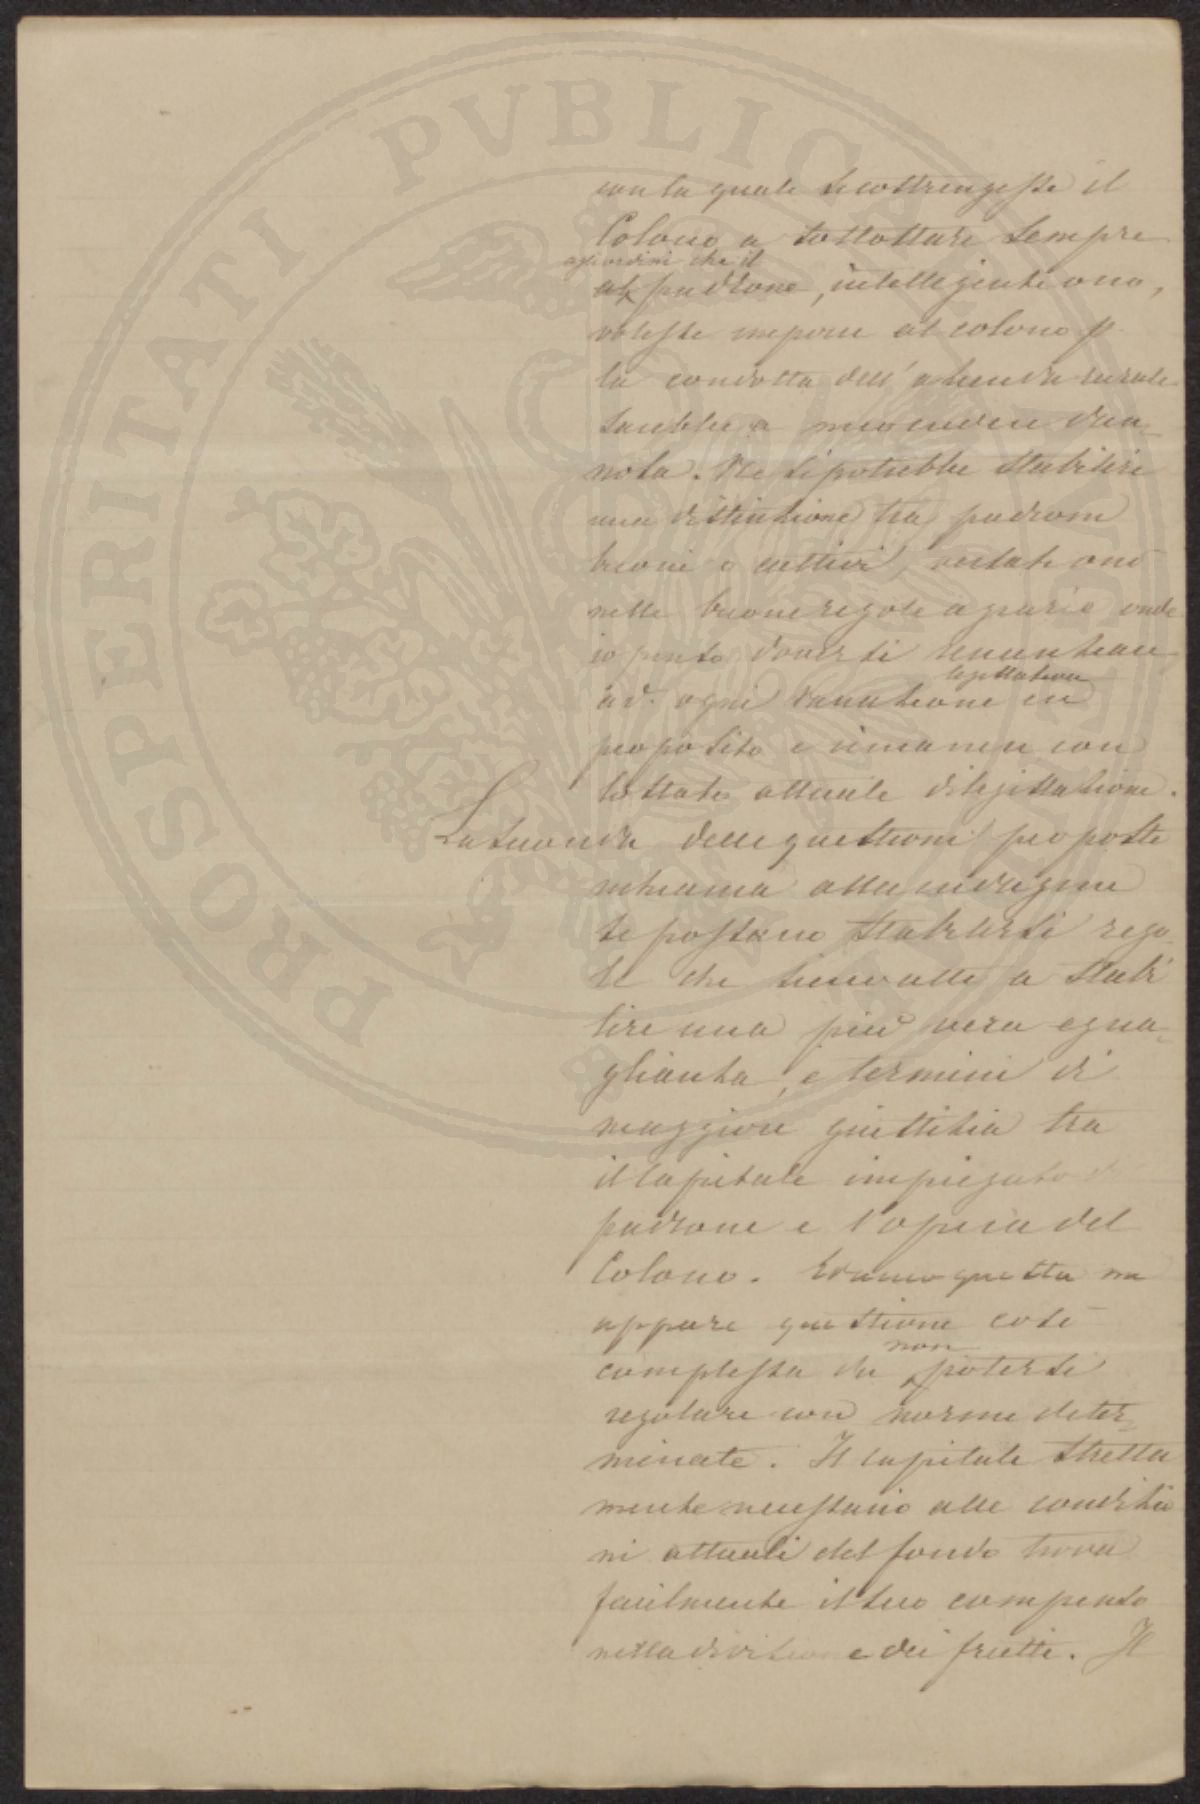 PROSPERITATI PVBLICAE
con la quale si costringesse il
Colono a sottostare sempre
che il
al padrone, intelligente o no,
volesse imporre al colono p
la condotta dell'azienda rurale
sarebbe a mio credere dan-
nosa. Ne si potrebbe stabilire
una distinzione tra padroni
buoni o cattivi, versati o no
nelle buone regole agrarie onde
io penso doversi rinunziare
legislativa
ad ogni sanzione in
proposito e rimanere con
lo stato attuale di legislazione.
La seconda delle questioni proposte
richiama alla indagine
se possano stabilirsi rego-
le che sieno atte a stabi
lire una più vera egua-
glianza, e termini di
maggiore giustizia tra
il Capitale impiegato d
padrone e l'opera del
Colono. questa
appare questione così
non
complessa da potersi
regolare con norme deter-
minate. Il capitale stretta
mente necessario alle condizio
ni attuali del fondo trova
facilmente il suo compenso
nella divisione dei frutti. Il